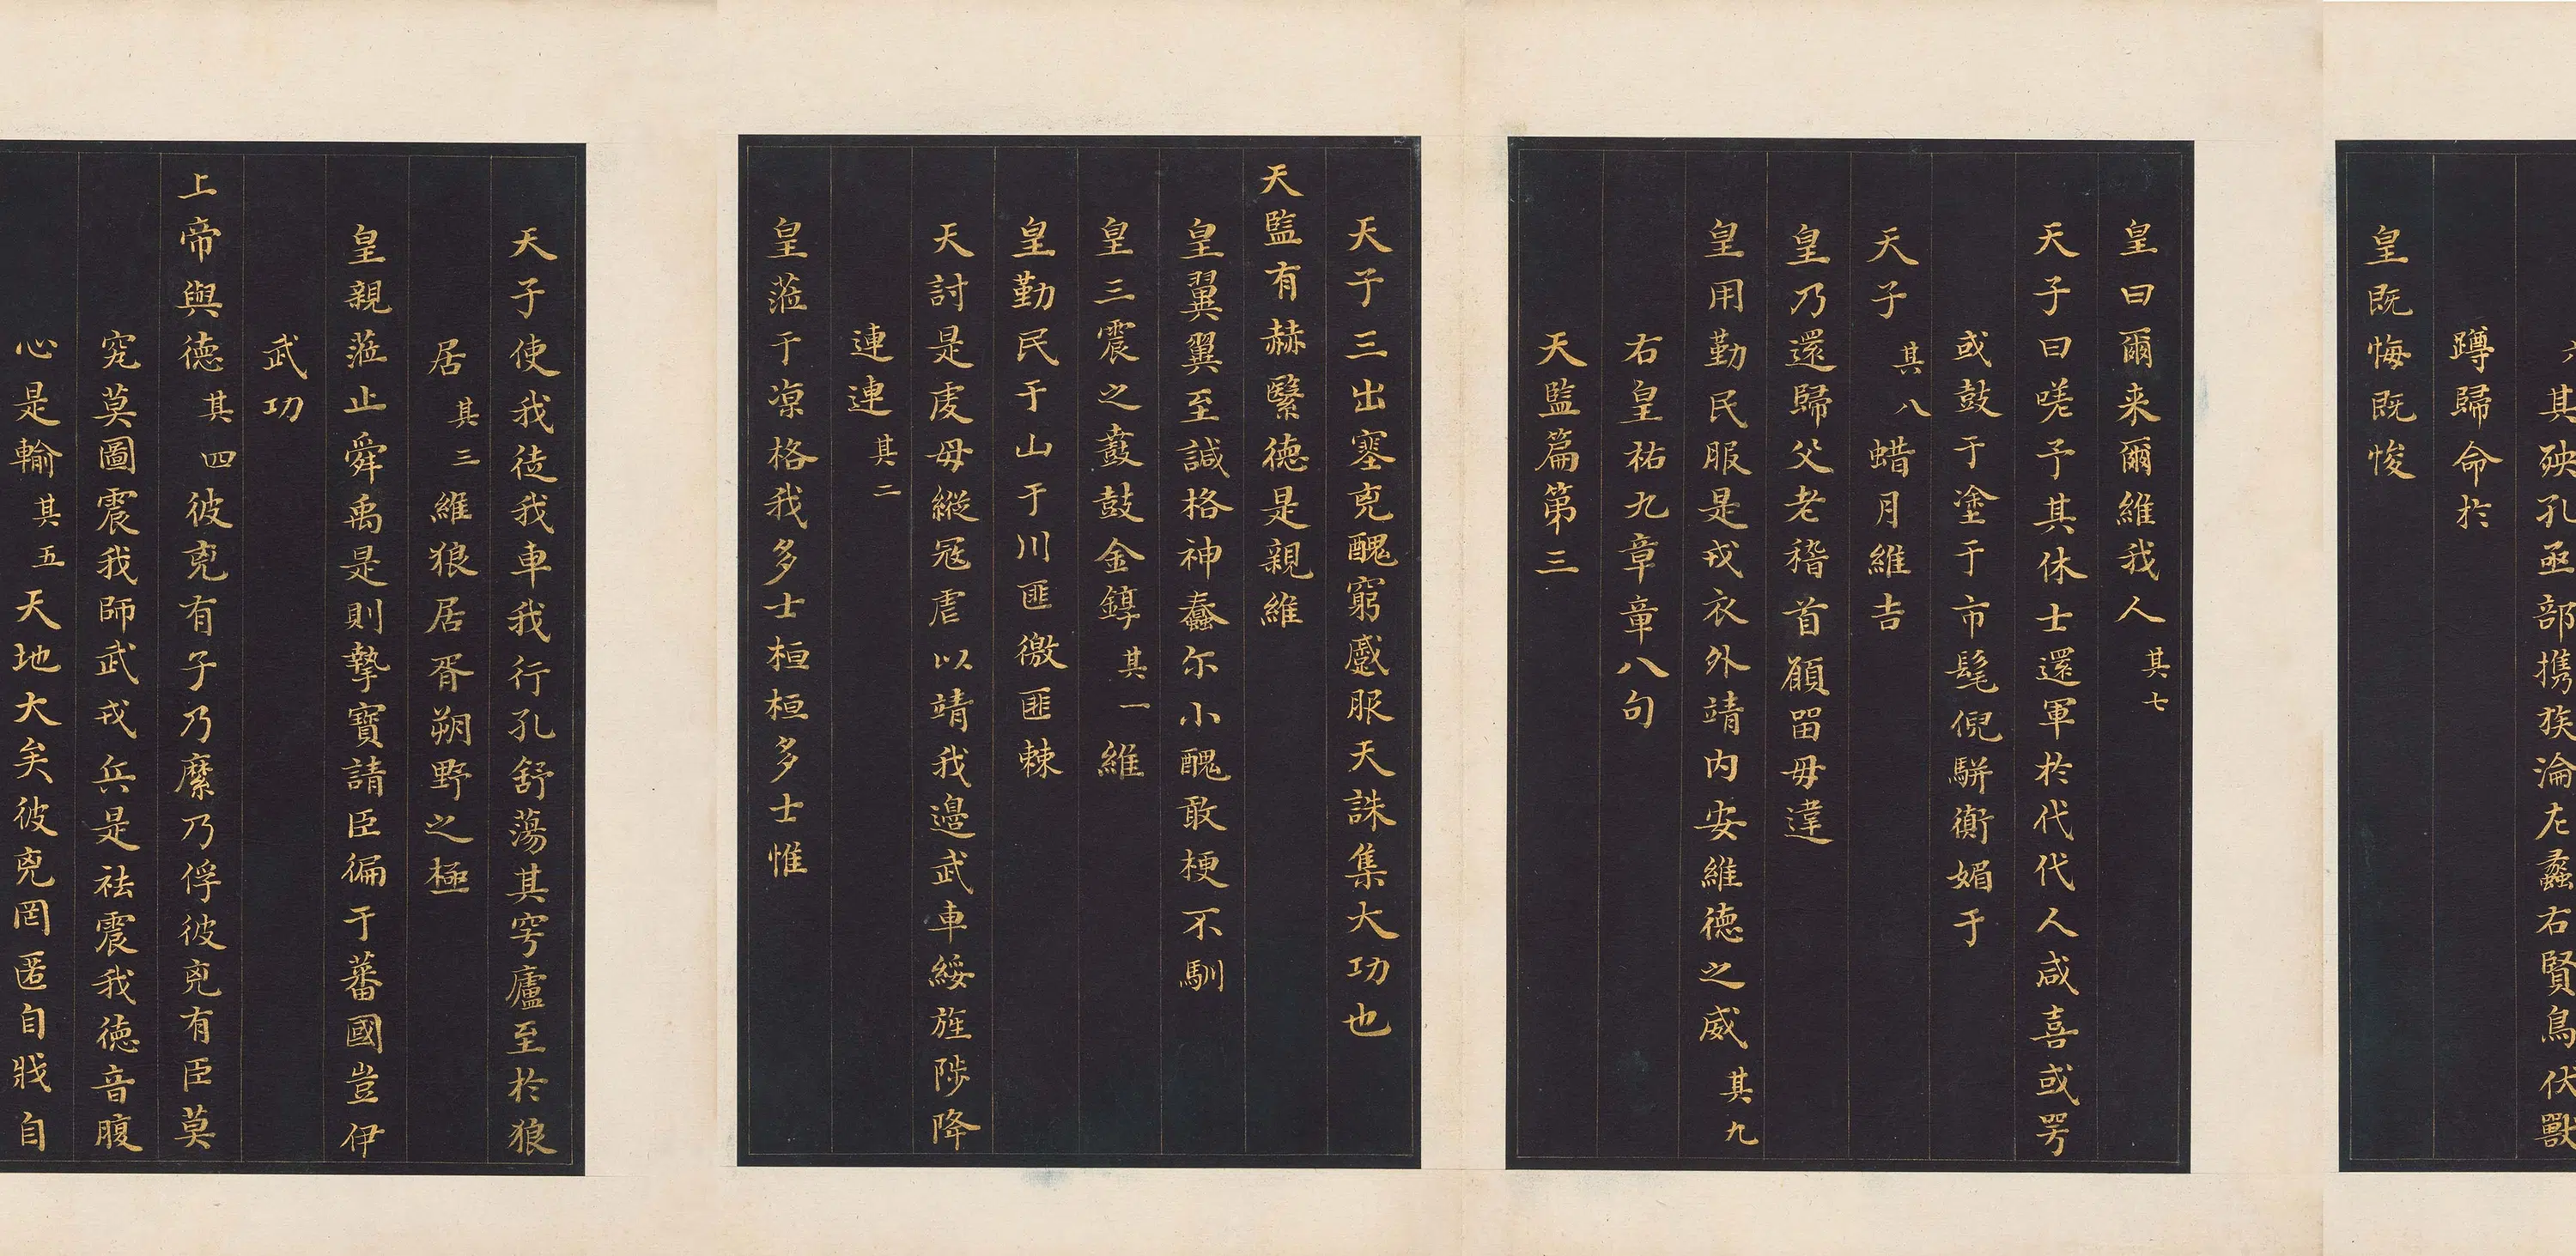 其殃孔亟部携族淪左蠡右賢鳥伏獸
蹲歸命於
皇既悔既悛
皇曰爾来爾維我人其七
天子曰嗟予其休士還軍於代代人咸喜或咢
或鼓于塗于市髦倪駢衢媚于
天子其八蜡月維吉
皇乃還歸父老稽首願留毋違
皇用勤民服是戎衣外靖内安維德之威其九
右皇祐九章章八句
天監篇第三
天子三出塞克醜窮慼服天誅集大功也
天監有赫繄德是親維
皇翼翼至諴格神蠢尔小醜敢梗不馴
皇三震之鼖鼓金錞其一維
皇勤民于山于川匪徼匪棘
天討是虔毋縱冦虐以靖我邉武車綏旌陟降
連連其二
皇蒞于涼格我多士桓桓多士惟
天子使我徒我車我行孔舒蕩其穹廬至於狼
居其三維狼居胥朔野之極
皇親蒞止舜禹是則摯寶請臣徧于蕃國豈伊
武功
上帝與德其四彼克有子乃縻乃俘彼克有臣莫
究莫圖震我師武戎兵是祛震我德音腹
心是輸其五天地大矣彼克罔匿自戕自